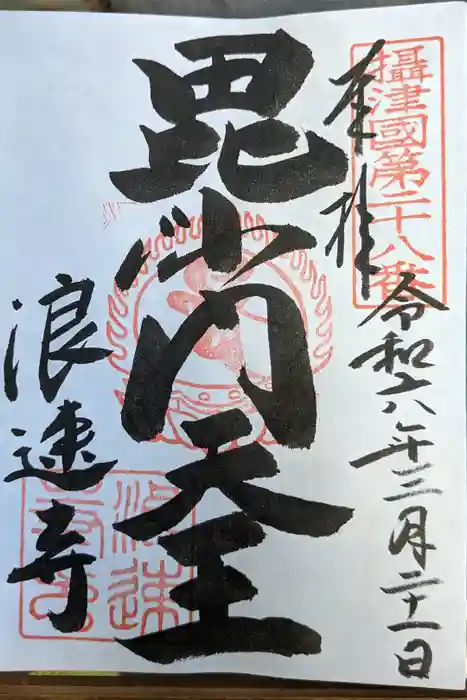 攝津國第二十八番
奉拝
令和六年三月二十一日
毘沙門天王
浪速寺
浪速
寺印